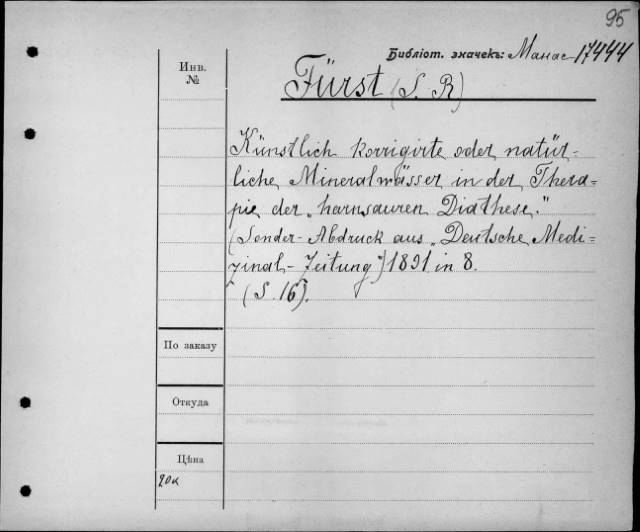 95
Библіот. значекъ: Манас 17444
Инв.
№
Fürst (L. R)
Künstlich korrigirte oder natür-
liche Mineralwässer in der Thera-
pie der „harnsauren Diathese."
(Sonder-Abdruck aus „Deutsche Medi-
zinal-Zeitung") 1891 in 8.
(S. 16).
По заказу
Откуда
Цѣна
20к